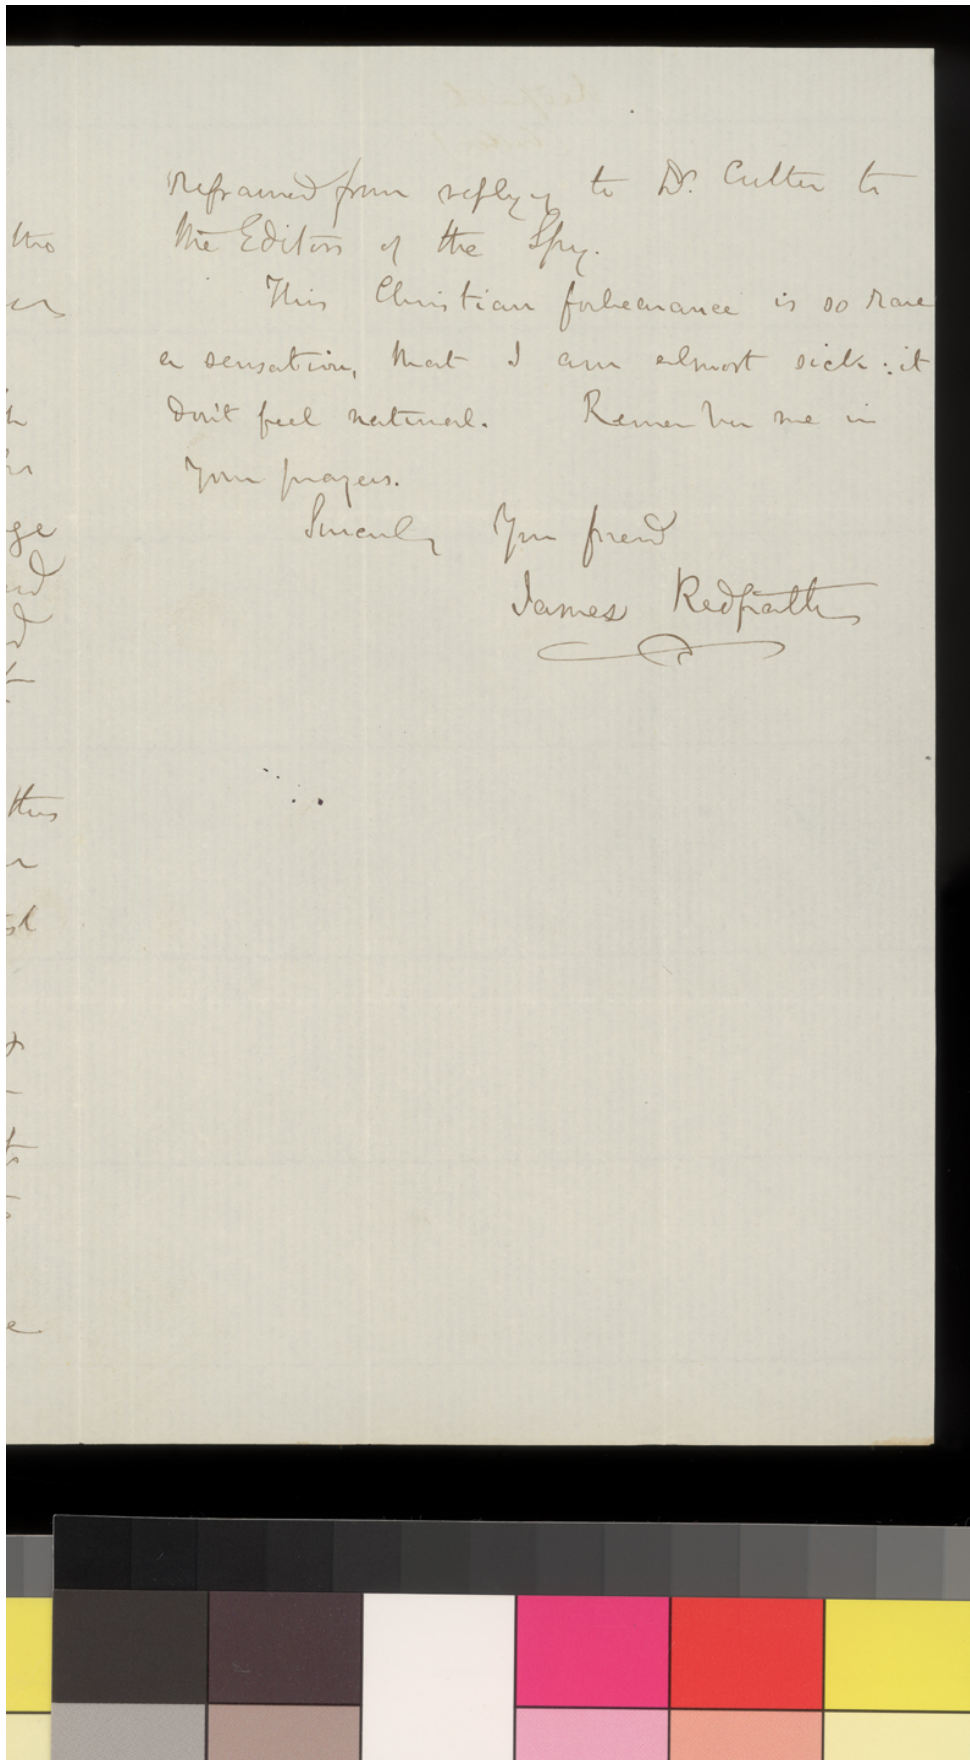 refrained from replying to Dr. Cutter to
the Editors of the Spy.
This Christian forbearance is so rare
a sensation, that I am almost sick: it
don't feel natural. Remember me in
your prayers.
Sincerely Your friend
James Redpath
tho
ge
this